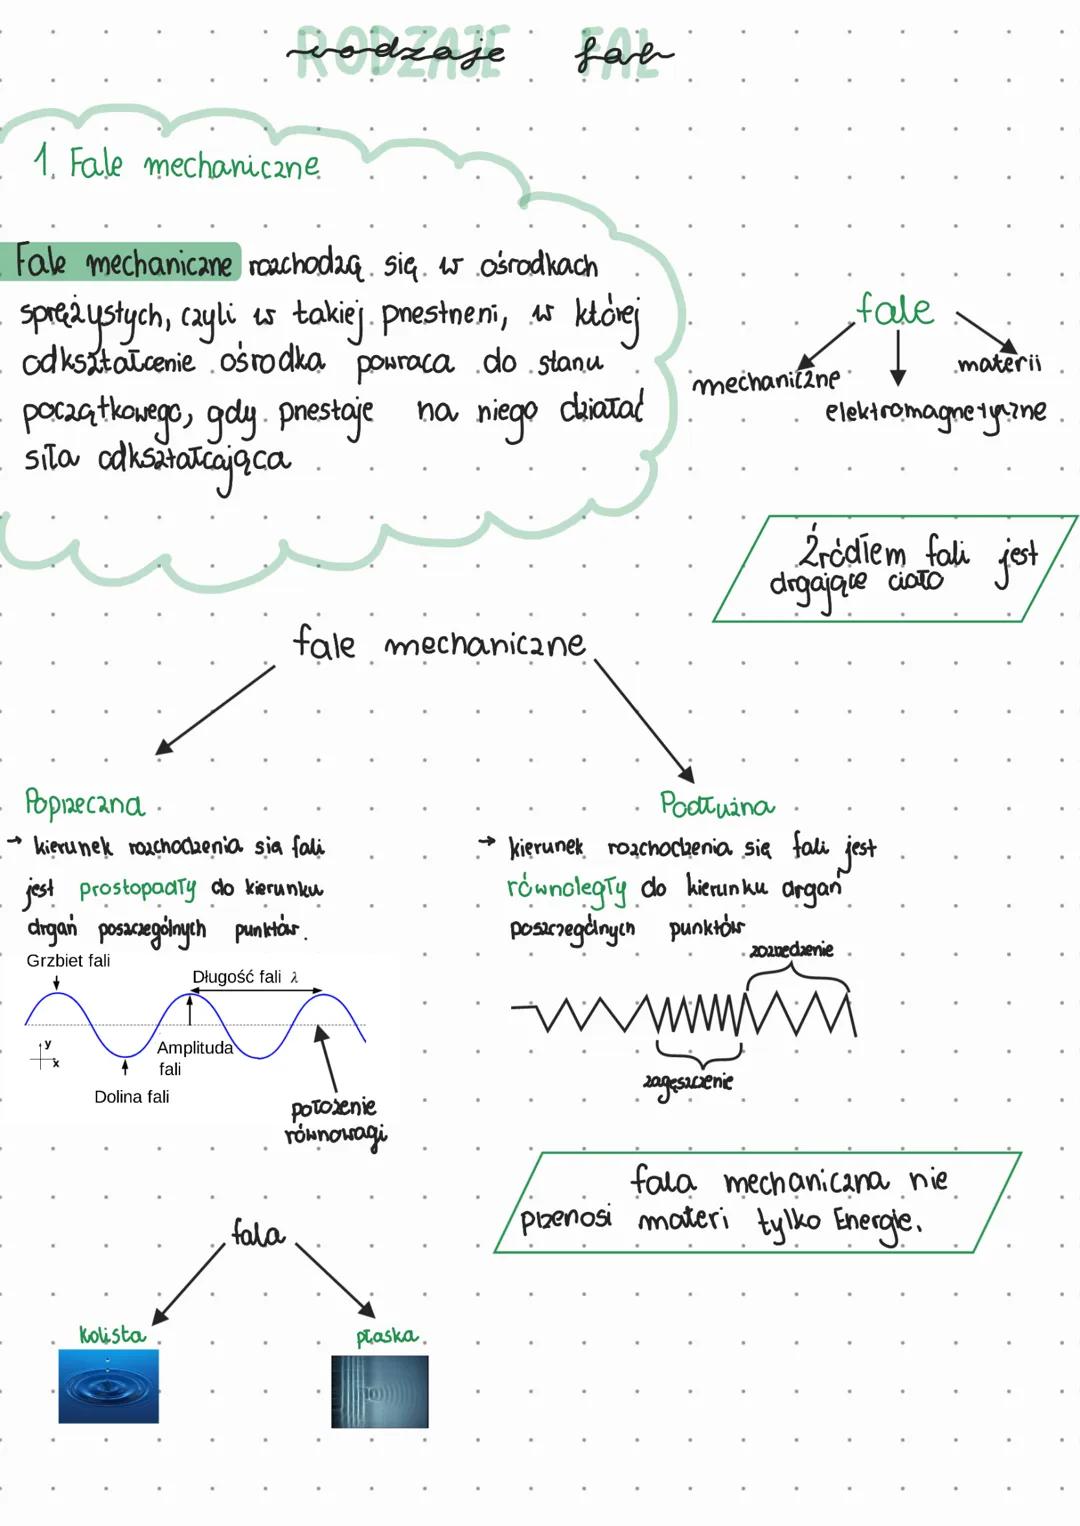 RODZAJE FAL
rodzaje fal
1. Fale mechaniczne
Fale mechaniczne rozchodzą się w ośrodkach
sprężystych, czyli w takiej przestrzeni, w której
odkształcenie ośrodka powraca do stanu
początkowego, gdy przestaje na niego działać
siła odkształcająca
fale
mechaniczne
materii
elektromagnetyczne
Źródłem fali jest
drgające ciało
fale mechaniczne
Poprzeczna
→ kierunek rozchodzenia się fali
jest prostopadły do kierunku
drgań poszczególnych punktów.
Grzbiet fali
Długość fali λ
y
x
Amplituda
fali
Dolina fali
położenie
równowagi
Podłużna
→ kierunek rozchodzenia się fali jest
równoległy do kierunku drgań
poszczególnych punktów
rozrzedzenie
zagęszczenie
fala mechaniczna nie
przenosi materi tylko Energie.
fala
kolista
płaska